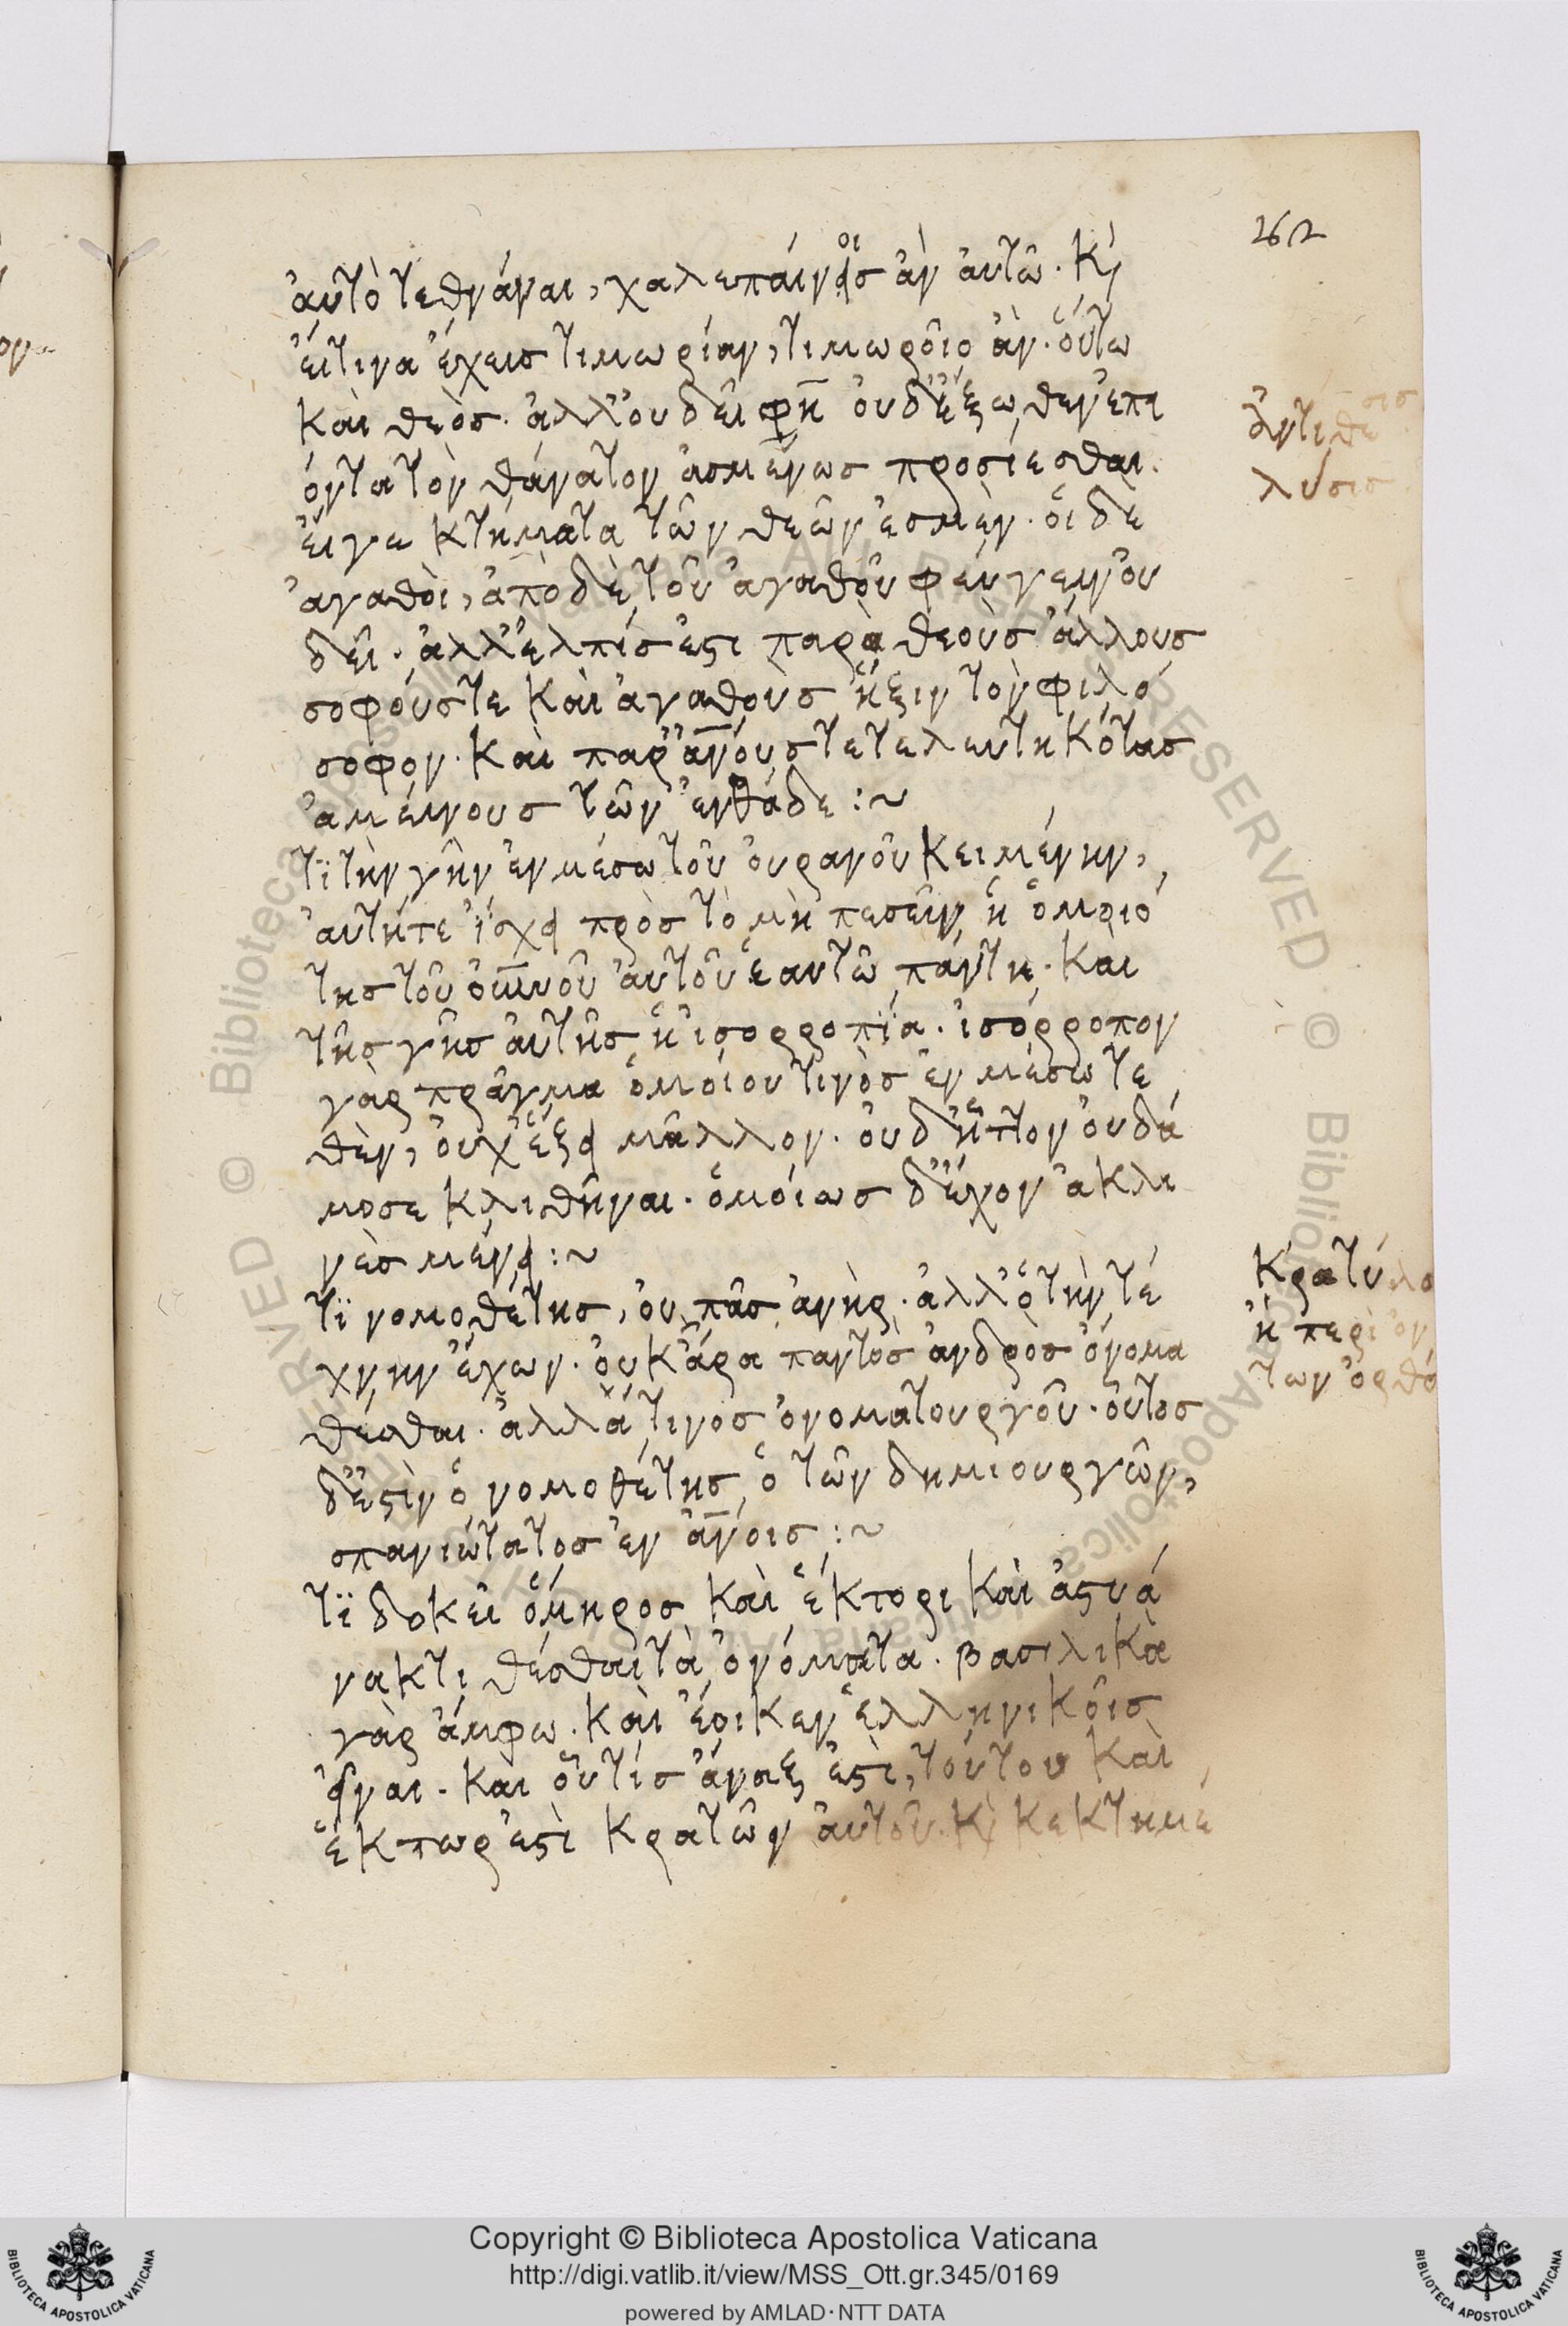 262
ἀυτὸ τεθνάναι, χαλεπάινοις ἀν ἀυτῶ. κ(αὶ)
ἐίτινα ἔχεισ τιμωρίαν, τιμωρῖο ἀν. ὅυτω
και θεὸσ. ἀλλ' ὀυ δεῖ φη̅ ὀυδ' ἔξωθεν ἐπι
όντα τὸν θάνατον ἀσμένωσ προσίεσθαι.
ἔιγε κτήματα τῶν θεῶν ἐσμὲν. ὁι δὲ
ἀγαθὸι, ἀπὸ δὲ τοῦ ἀγαθοῦ φεύγειν ὀυ
δεῖ. ἀλλ' ἐλπίσ ἐστι παρὰ θεοὺσ ἄλλουσ
σοφούστε και ἀγαθοὺσ ἥξιν τὸν φιλό
σοφον. και παρ' ἀν̅ούσ τε τελευτηκότασ
ἀμείνουσ τῶν ἐνθάδε :~
τῒ τὴν γῆν ἐν μέσω τοῦ ὀυρανοῦ κειμένην,
ἀυτήτε ἴσχει πρὸσ τὸ μὴ πεσεῖν, ἡ ὁμοιό
τησ τοῦ ὀυ̅νοῦ ἀυτοῦ ἑαυτῶ πάντη. και
τῆσ γῆσ ἀυτῆσ ἡ ἰσορροπΐα. ἰσόρροπον
γὰρ πρᾶγμα ὁμοίου τινὸσ ἐν μέσω τε
θὲν, ὀυχ' ἕξει μᾶλλον. ὀυδ' ἧττον ὀυδά
μοσε κλιθῆναι. ὁμόιωσ δ' ἔχον ἀκλι
νὲσ μένει :~
τῒ νομοθέτησ, ὀυ πᾶσ ἀνὴρ. ἀλλ' ὁ τὴν τέ
χνην ἔχων. ὀυκ' ἄρα παντὸσ ἀνδρὸσ ὄνομα
θέσθαι. ἀλλά τινοσ ὀνοματουργοῦ. ὁυτοσ
δ' ἐστὶν ὁ νομοθέτησ, ὁ τῶν δημιουργῶν,
σπανιώτατοσ ἐν ἀν̅οισ :~
τῒ δοκεῖ ὅμηροσ και ἕκτορι και ἀστυά
νακτι θέσθαι τὰ ὀνόματα. βασιλικὰ
γὰρ ἄμφω. και ἔοικεν ἑλληνικοῖσ
εἶναι. και ὅυ τίσ ἄναξ ἐστὶ, τούτου και
ἕκτωρ ἐστὶ κρατῶν ἀυτοῦ. κ(αὶ) κεκτημέ
ἀντίθεσισ
λύσισ
Κρατύλοσ
ἢ περὶ ὀν
των ὀρθό
Copyright © Biblioteca Apostolica Vaticana
http://digi.vatlib.it/view/MSS_Ott.gr.345/0169
powered by AMLAD·NTT DATA